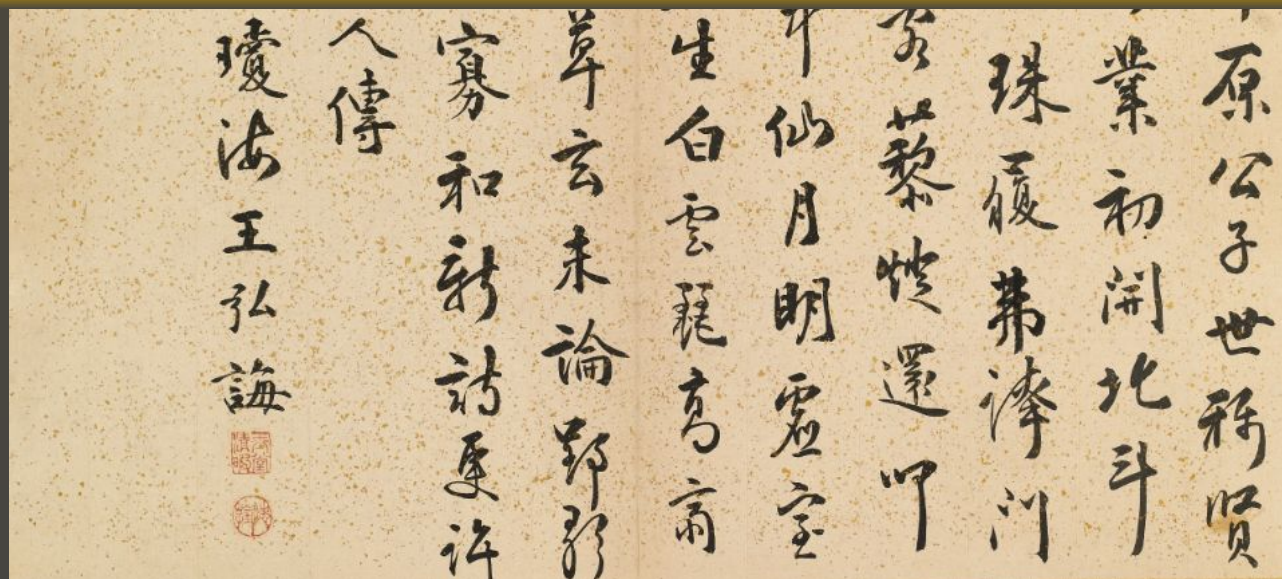 原公子世稱賢
業初開北斗
珠履弗譁門
客藜燈還叩
仙月明虛室
生白雲高齋
草玄未論郢歌
寡和新詩更許
人傳
瓊海王弘誨